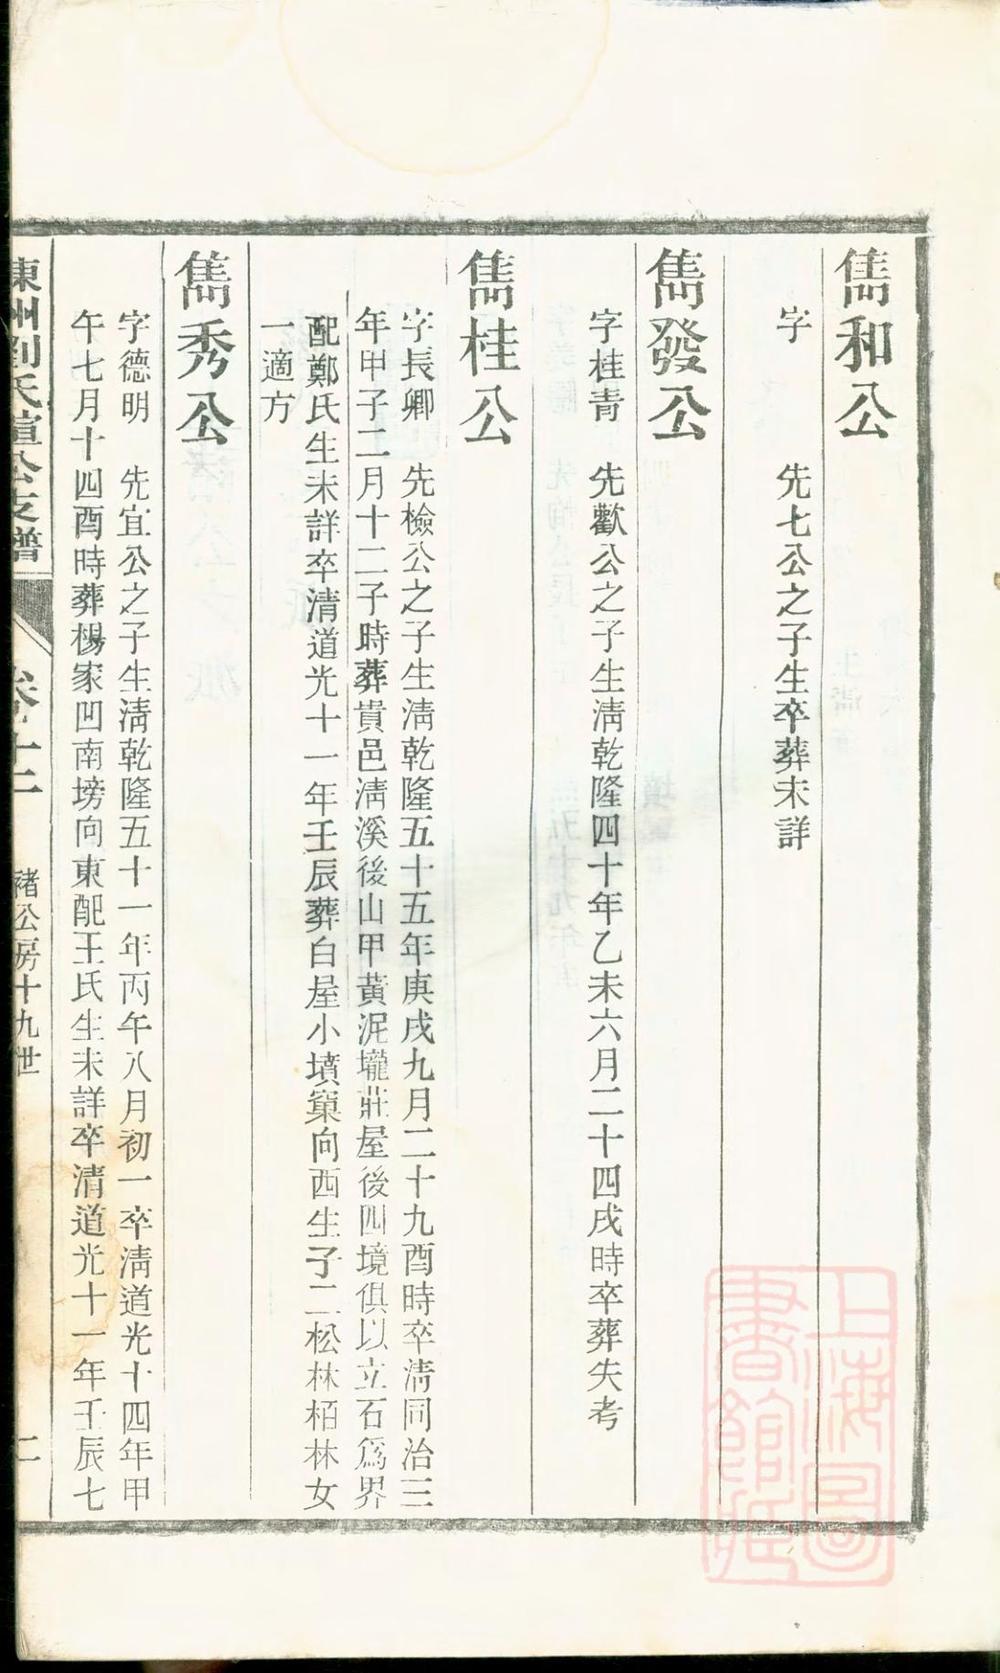 雋和公
字　　先七公之子生卒葬未詳
雋發公
字桂青　先歡公之子生淸乾隆四十年乙未六月二十四戌時卒葬失考
雋桂公
字長卿　先檢公之子生淸乾隆五十五年庚戌九月二十九酉時卒淸同治三
年甲子二月十二子時葬貴邑淸溪後山甲黃泥壠莊屋後四境俱以立石爲界
配鄭氏生未詳卒淸道光十一年壬辰葬白屋小墳窠向西生子二松林栢林女
一適方
雋秀公
字德明　先宜公之子生淸乾隆五十一年丙午八月初一卒淸道光十四年甲
午七月十四酉時葬楊家凹南塝向東配王氏生未詳卒淸道光十一年壬辰七
州劉氏暄公支譜　卷十二　褚公房十九世　二
上海圖
書館藏